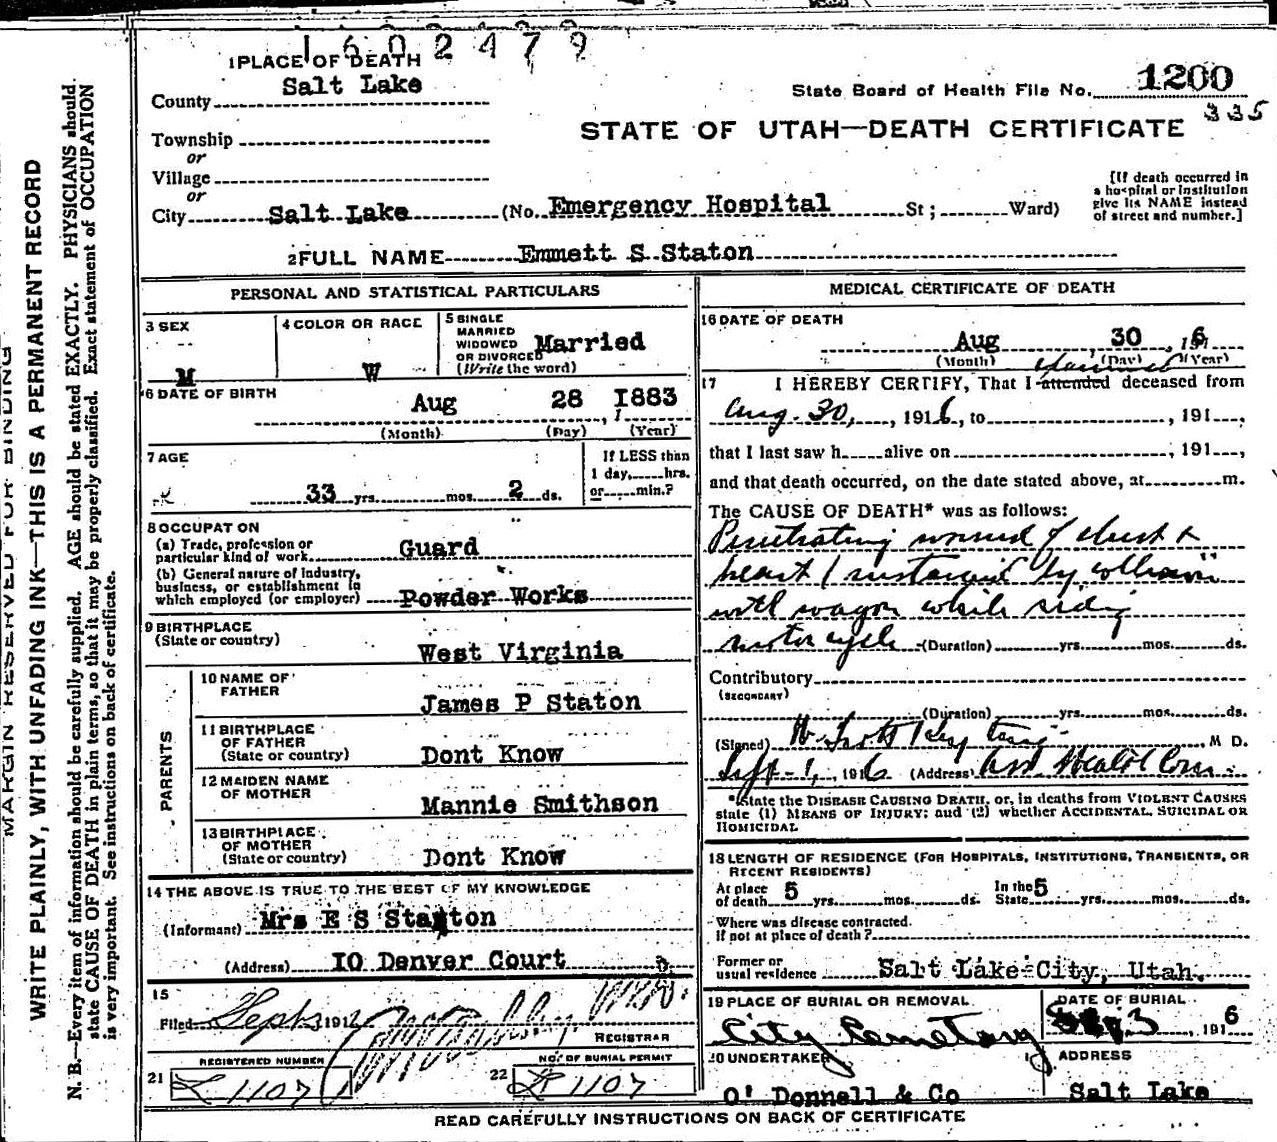 1602479
1 PLACE OF DEATH
County Salt Lake
State Board of Health File No. 1200
335
STATE OF UTAH—DEATH CERTIFICATE
Township
or
Village
or
City Salt Lake (No. Emergency Hospital St; Ward)
[If death occurred in
a hospital or institution
give its NAME instead
of street and number.]
2 FULL NAME Emmett S Staton
PERSONAL AND STATISTICAL PARTICULARS
3 SEX
M
4 COLOR OR RACE
W
5 SINGLE
MARRIED
WIDOWED
OR DIVORCED
(Write the word)
Married
6 DATE OF BIRTH
Aug 28 1883
(Month) (Day) (Year)
7 AGE
33 yrs. mos. 2 ds.
If LESS than
1 day, hrs.
or min.?
8 OCCUPATION
(a) Trade, profession or
particular kind of work Guard
(b) General nature of industry,
business, or establishment in
which employed (or employer) Powder Works
9 BIRTHPLACE
(State or country)
West Virginia
PARENTS
10 NAME OF
FATHER
James P Staton
11 BIRTHPLACE
OF FATHER
(State or country) Dont Know
12 MAIDEN NAME
OF MOTHER
Mannie Smithson
13 BIRTHPLACE
OF MOTHER
(State or country) Dont Know
14 THE ABOVE IS TRUE TO THE BEST OF MY KNOWLEDGE
(Informant) Mrs E S Staton
(Address) 10 Denver Court
15
Filed Sept 191
REGISTRAR
REGISTERED NUMBER
21 1107
NO. OF BURIAL PERMIT
22 1107
MEDICAL CERTIFICATE OF DEATH
16 DATE OF DEATH
Aug 30, 1916
(Month) (Day) (Year)
17 I HEREBY CERTIFY, That I attended deceased from
Aug. 30, 1916, to , 191 ,
that I last saw h alive on , 191 ,
and that death occurred, on the date stated above, at m.
The CAUSE OF DEATH* was as follows:
Penetrating wound of chest &
heart sustained by collision
with wagon while riding
motorcycle (Duration) yrs. mos. ds.
Contributory
(SECONDARY)
(Duration) yrs. mos. ds.
(Signed) M D.
Sept-1, 1916 (Address) Health Com.
*State the DISEASE CAUSING DEATH, or, in deaths from VIOLENT CAUSES
state (1) MEANS OF INJURY; and (2) whether ACCIDENTAL, SUICIDAL OR
HOMICIDAL
18 LENGTH OF RESIDENCE (FOR HOSPITALS, INSTITUTIONS, TRANSIENTS, OR
RECENT RESIDENTS)
At place
of death 5 yrs. mos. ds.
In the
State 5 yrs. mos. ds.
Where was disease contracted.
if not at place of death?
Former or
usual residence Salt Lake City, Utah.
19 PLACE OF BURIAL OR REMOVAL
City Cemetery
DATE OF BURIAL
3, 1916
20 UNDERTAKER
O'Donnell & Co
ADDRESS
Salt Lake
READ CAREFULLY INSTRUCTIONS ON BACK OF CERTIFICATE
MARGIN RESERVED FOR BINDING
WRITE PLAINLY, WITH UNFADING INK—THIS IS A PERMANENT RECORD
N. B.—Every item of information should be carefully supplied. AGE should be stated EXACTLY. PHYSICIANS should
state CAUSE OF DEATH in plain terms, so that it may be properly classified. Exact statement of OCCUPATION
is very important. See instructions on back of certificate.